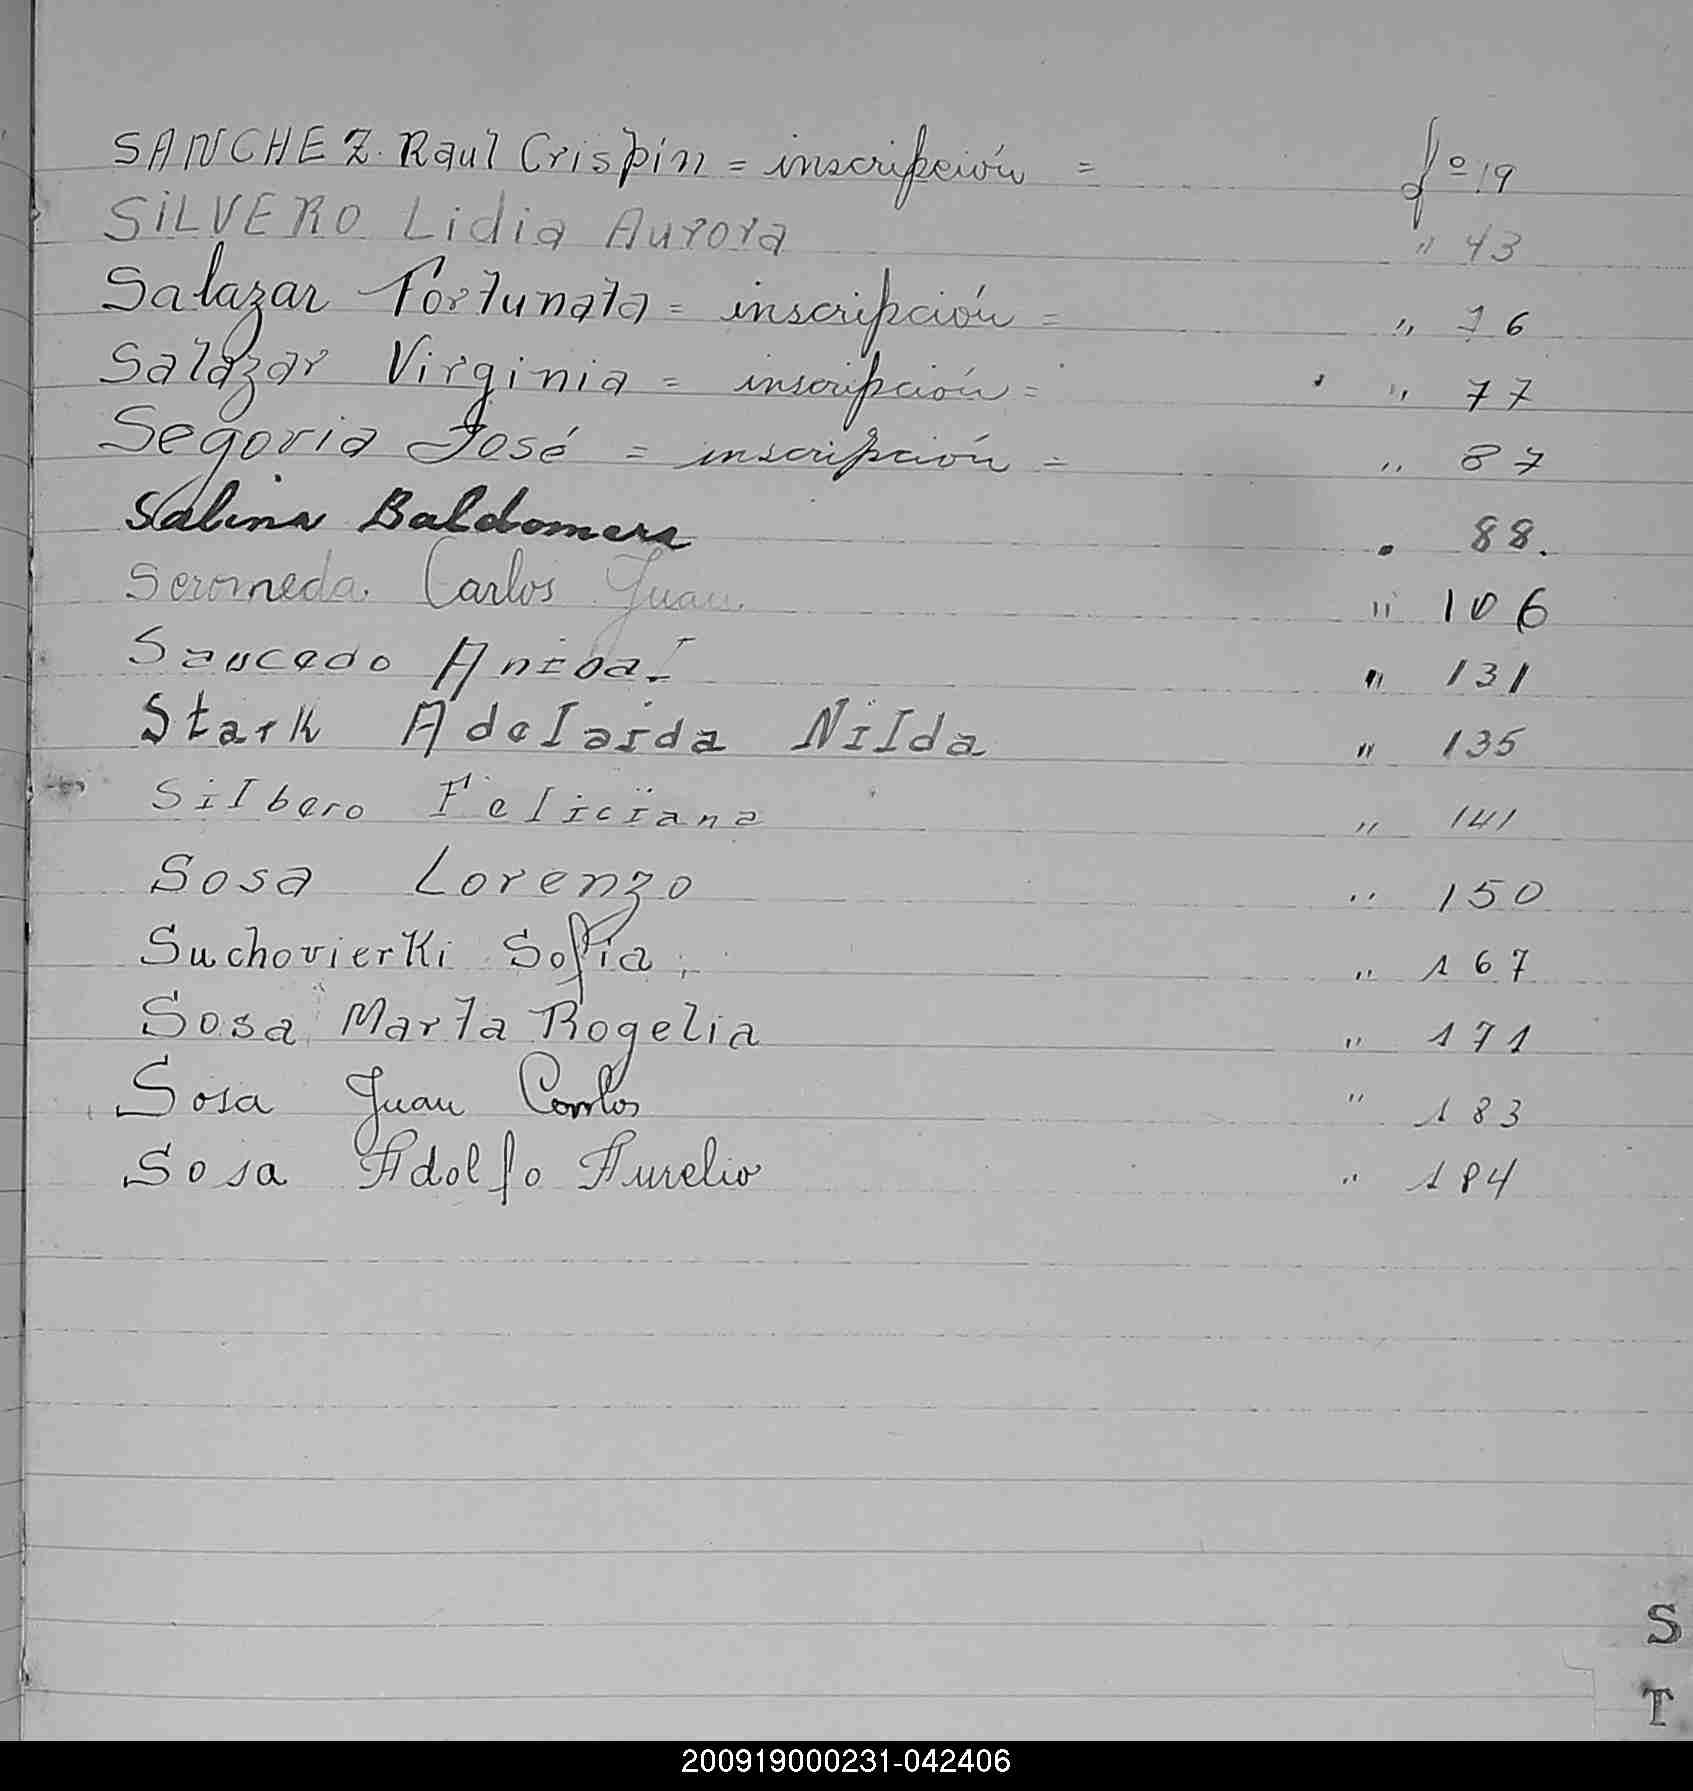 SANCHEZ. Raul Crispin = inscripción = fº 19
SILVERO Lidia Aurora " 43
Salazar Fortunata = inscripción = " 76
Salazar Virginia = inscripción = " 77
Segovia José = inscripción = " 87
Salina Baldomera " 88.
Seromeda Carlos Juan " 106
Saucedo Anibal " 131
Stark Adelaida Nilda " 135
Silbero Feliciana " 141
Sosa Lorenzo " 150
Suchovierki Sofia " 167
Sosa Marta Rogelia " 171
Sosa Juan Carlos " 183
Sosa Adolfo Aurelio " 184
S
T
200919000231-042406